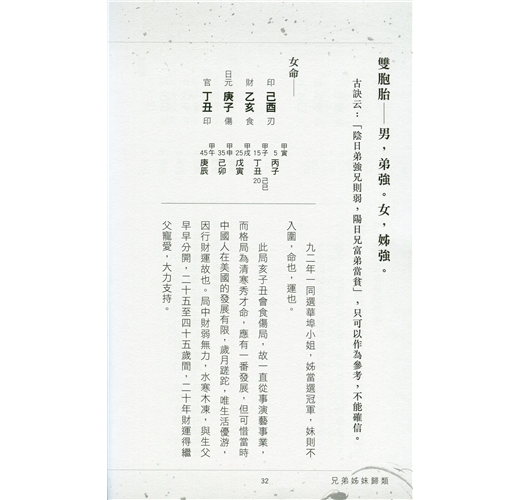 雙胞胎——男，弟強。女，姊強。
古訣云：「陰日弟強兄則弱，陽日兄富弟當貧」，只可以作為參考，不能確信。
女命——
印 己酉 刃
財 乙亥 食
日元 庚子 傷
官 丁丑 印
甲寅 5 丙子
甲子 15 丁丑 20 己巳
甲戌 25 戊寅
甲申 35 己卯
甲午 45 庚辰
九二年一同選華埠小姐，姊當選冠軍，妹則不
入圍，命也，運也。
此局亥子丑會食傷局，故一直從事演藝事業，
而格局為清寒秀才命，應有一番發展，但可惜當時
中國人在美國的發展有限，歲月蹉跎，唯生活優游，
因行財運故也。局中財弱無力，水寒木凍，與生父
早早分開，二十五至四十五歲間，二十年財運得繼
父寵愛，大力支持。
32
兄弟姊妹歸類